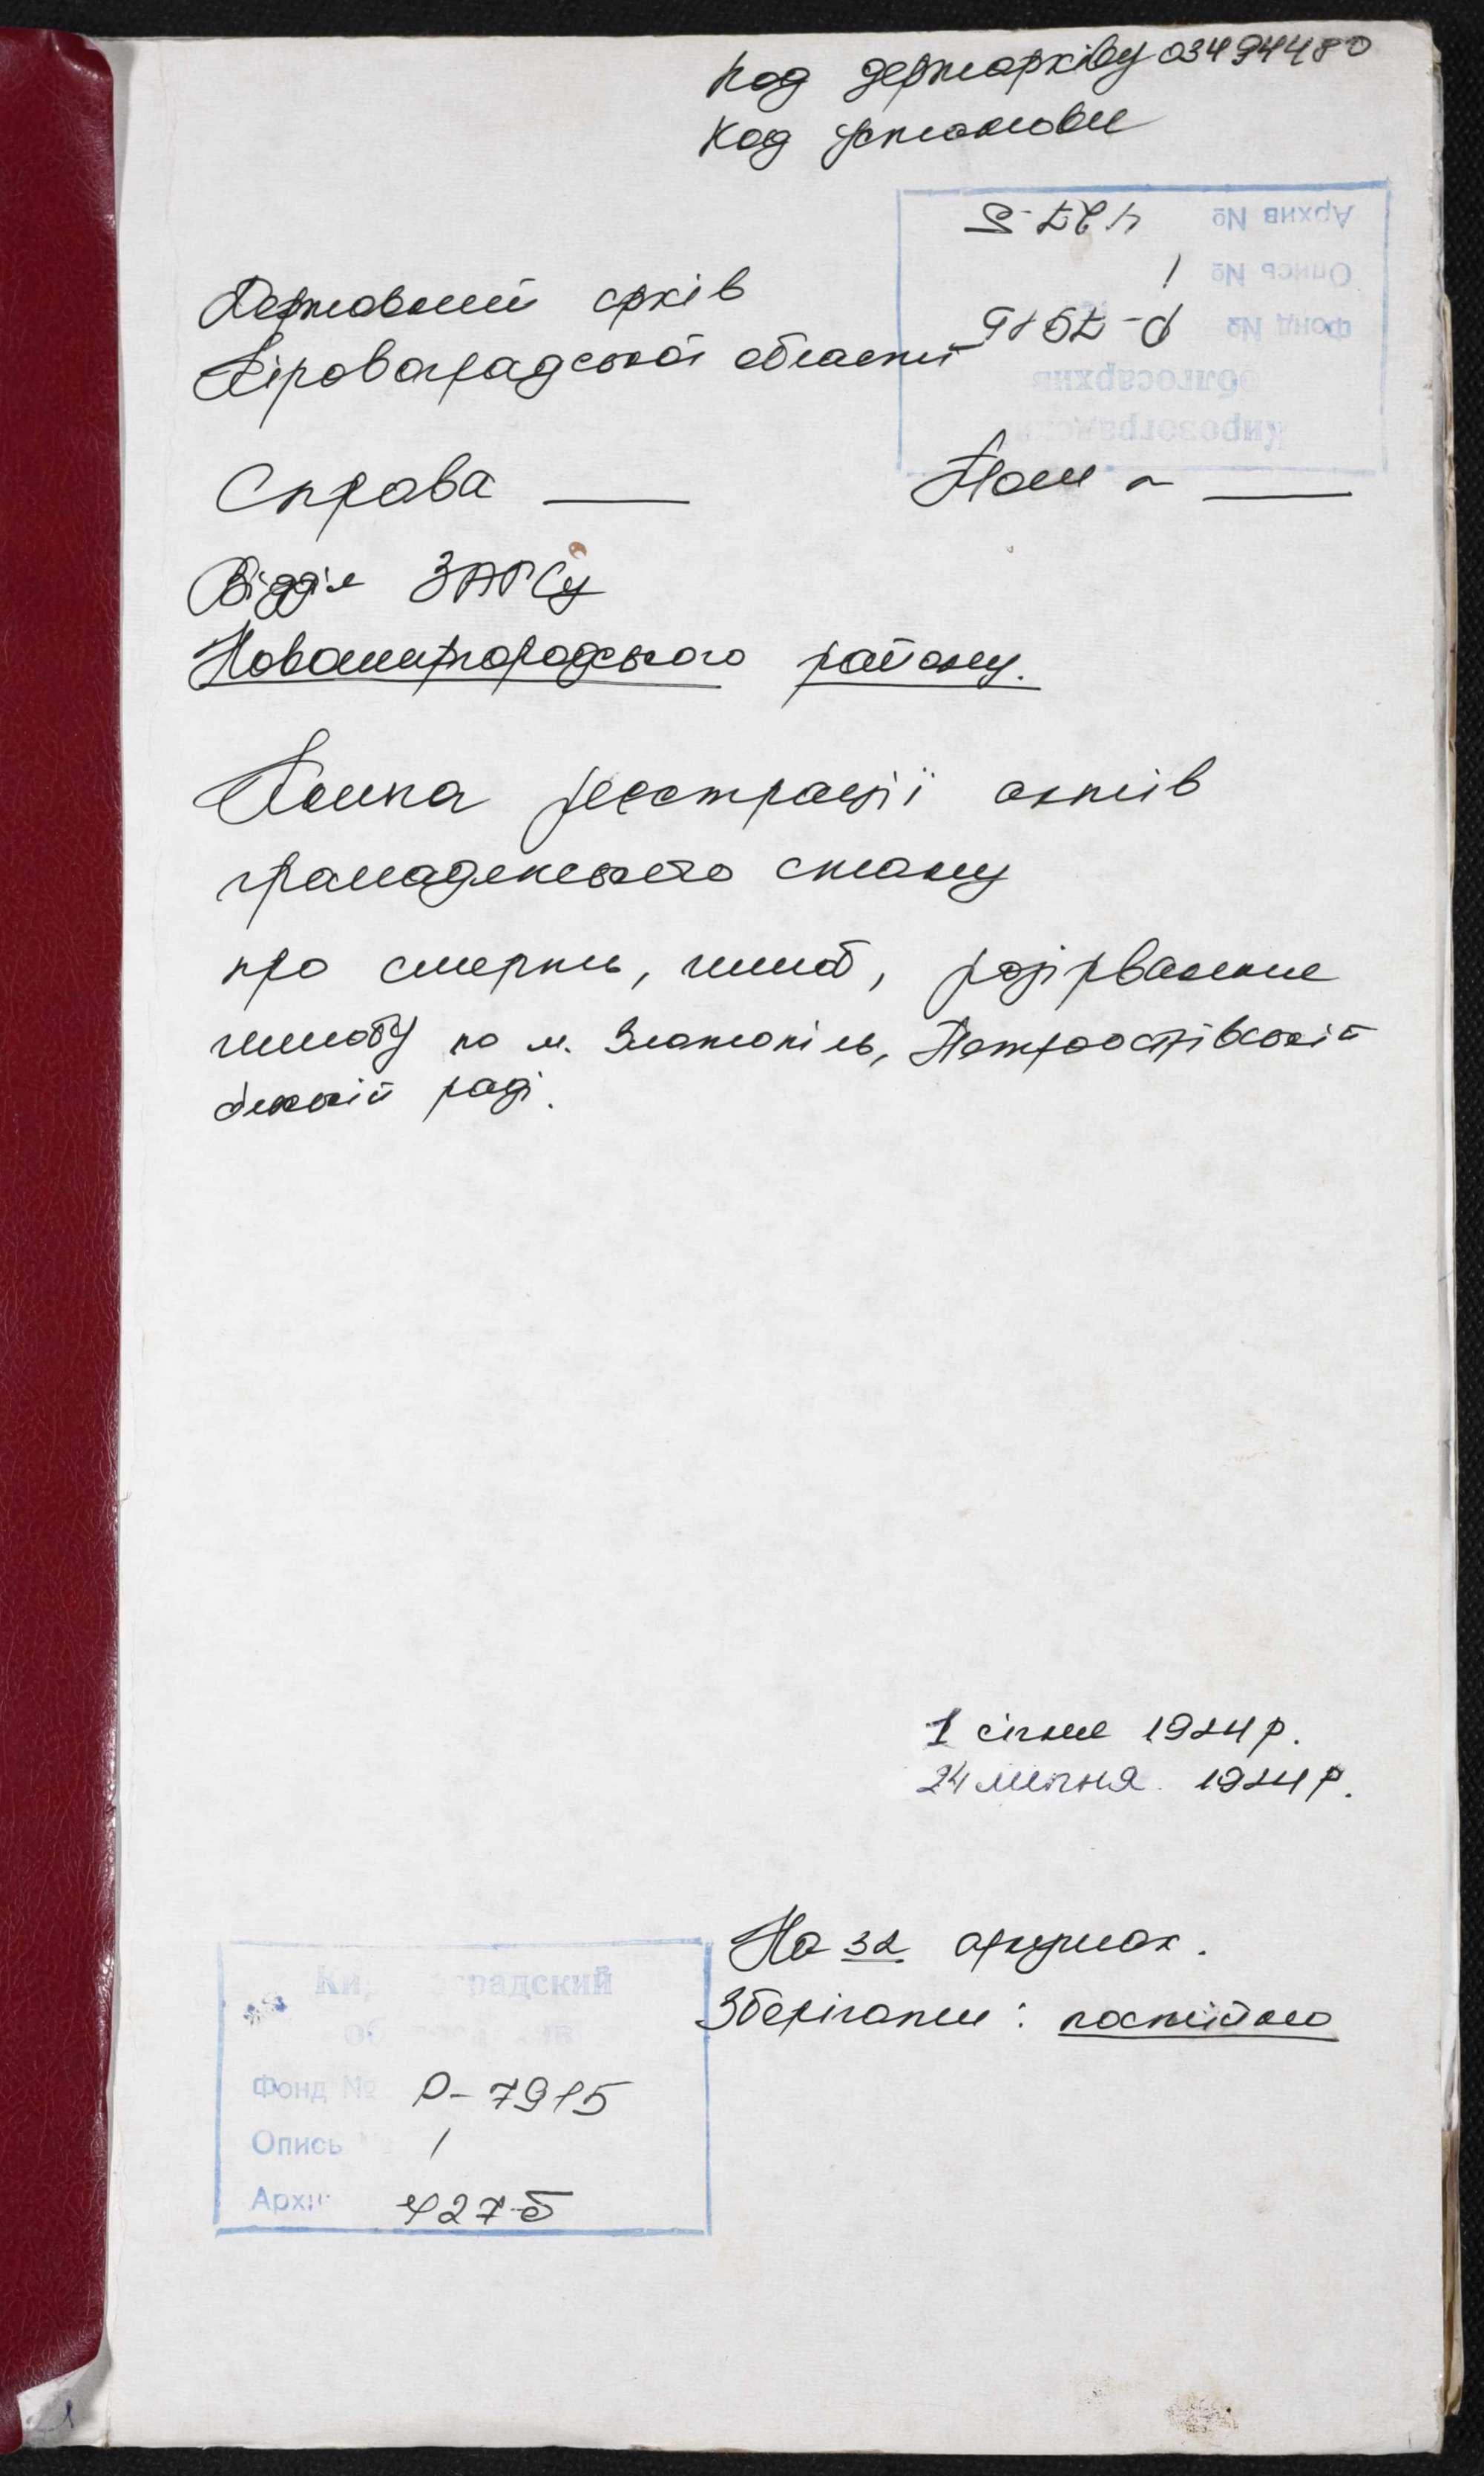 Код держархіву 03494480
Код установи
Архив № 427-5
Опись № 1
Фонд № Р-7915
облгосархив
Кировоградский
Державний архів
Кіровоградської області
Справа ___ Том ~ ___
Відділ ЗАГСу
Новомиргородського району.
Книга реєстрації актів
громадянського стану
про смерть, шлюб, розірвання
шлюбу по м. Златопіль, Петроострівській
сільській раді.
1 січня 1924 р.
24 липня 1924 р.
На 32 аркушах.
Зберігати: постійно
Кировоградский
Фонд № Р-7915
Опись 1
Архив 427-б